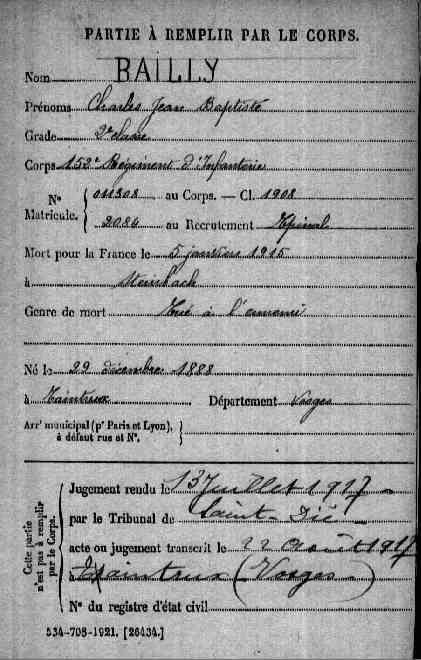 PARTIE À REMPLIR PAR LE CORPS.
Nom BAILLY
Prénoms Charles Jean Baptiste
Grade 2e classe
Corps 152e Régiment d'Infanterie
N° Matricule. { 011308 au Corps. — Cl. 1908
2084 au Recrutement Epinal
Mort pour la France le 5 janvier 1915
à Steinbach
Genre de mort Tué à l'ennemi
Né le 29 décembre 1888
à Taintrux Département Vosges
Arrt municipal (pr Paris et Lyon), à défaut rue et N°. }
Cette partie n'est pas à remplir par le Corps. {
Jugement rendu le 13 Juillet 1917
par le Tribunal de Saint Dié
acte ou jugement transcrit le 22 Août 1917
Taintrux (Vosges)
N° du registre d'état civil
534-708-1921. [26434.]